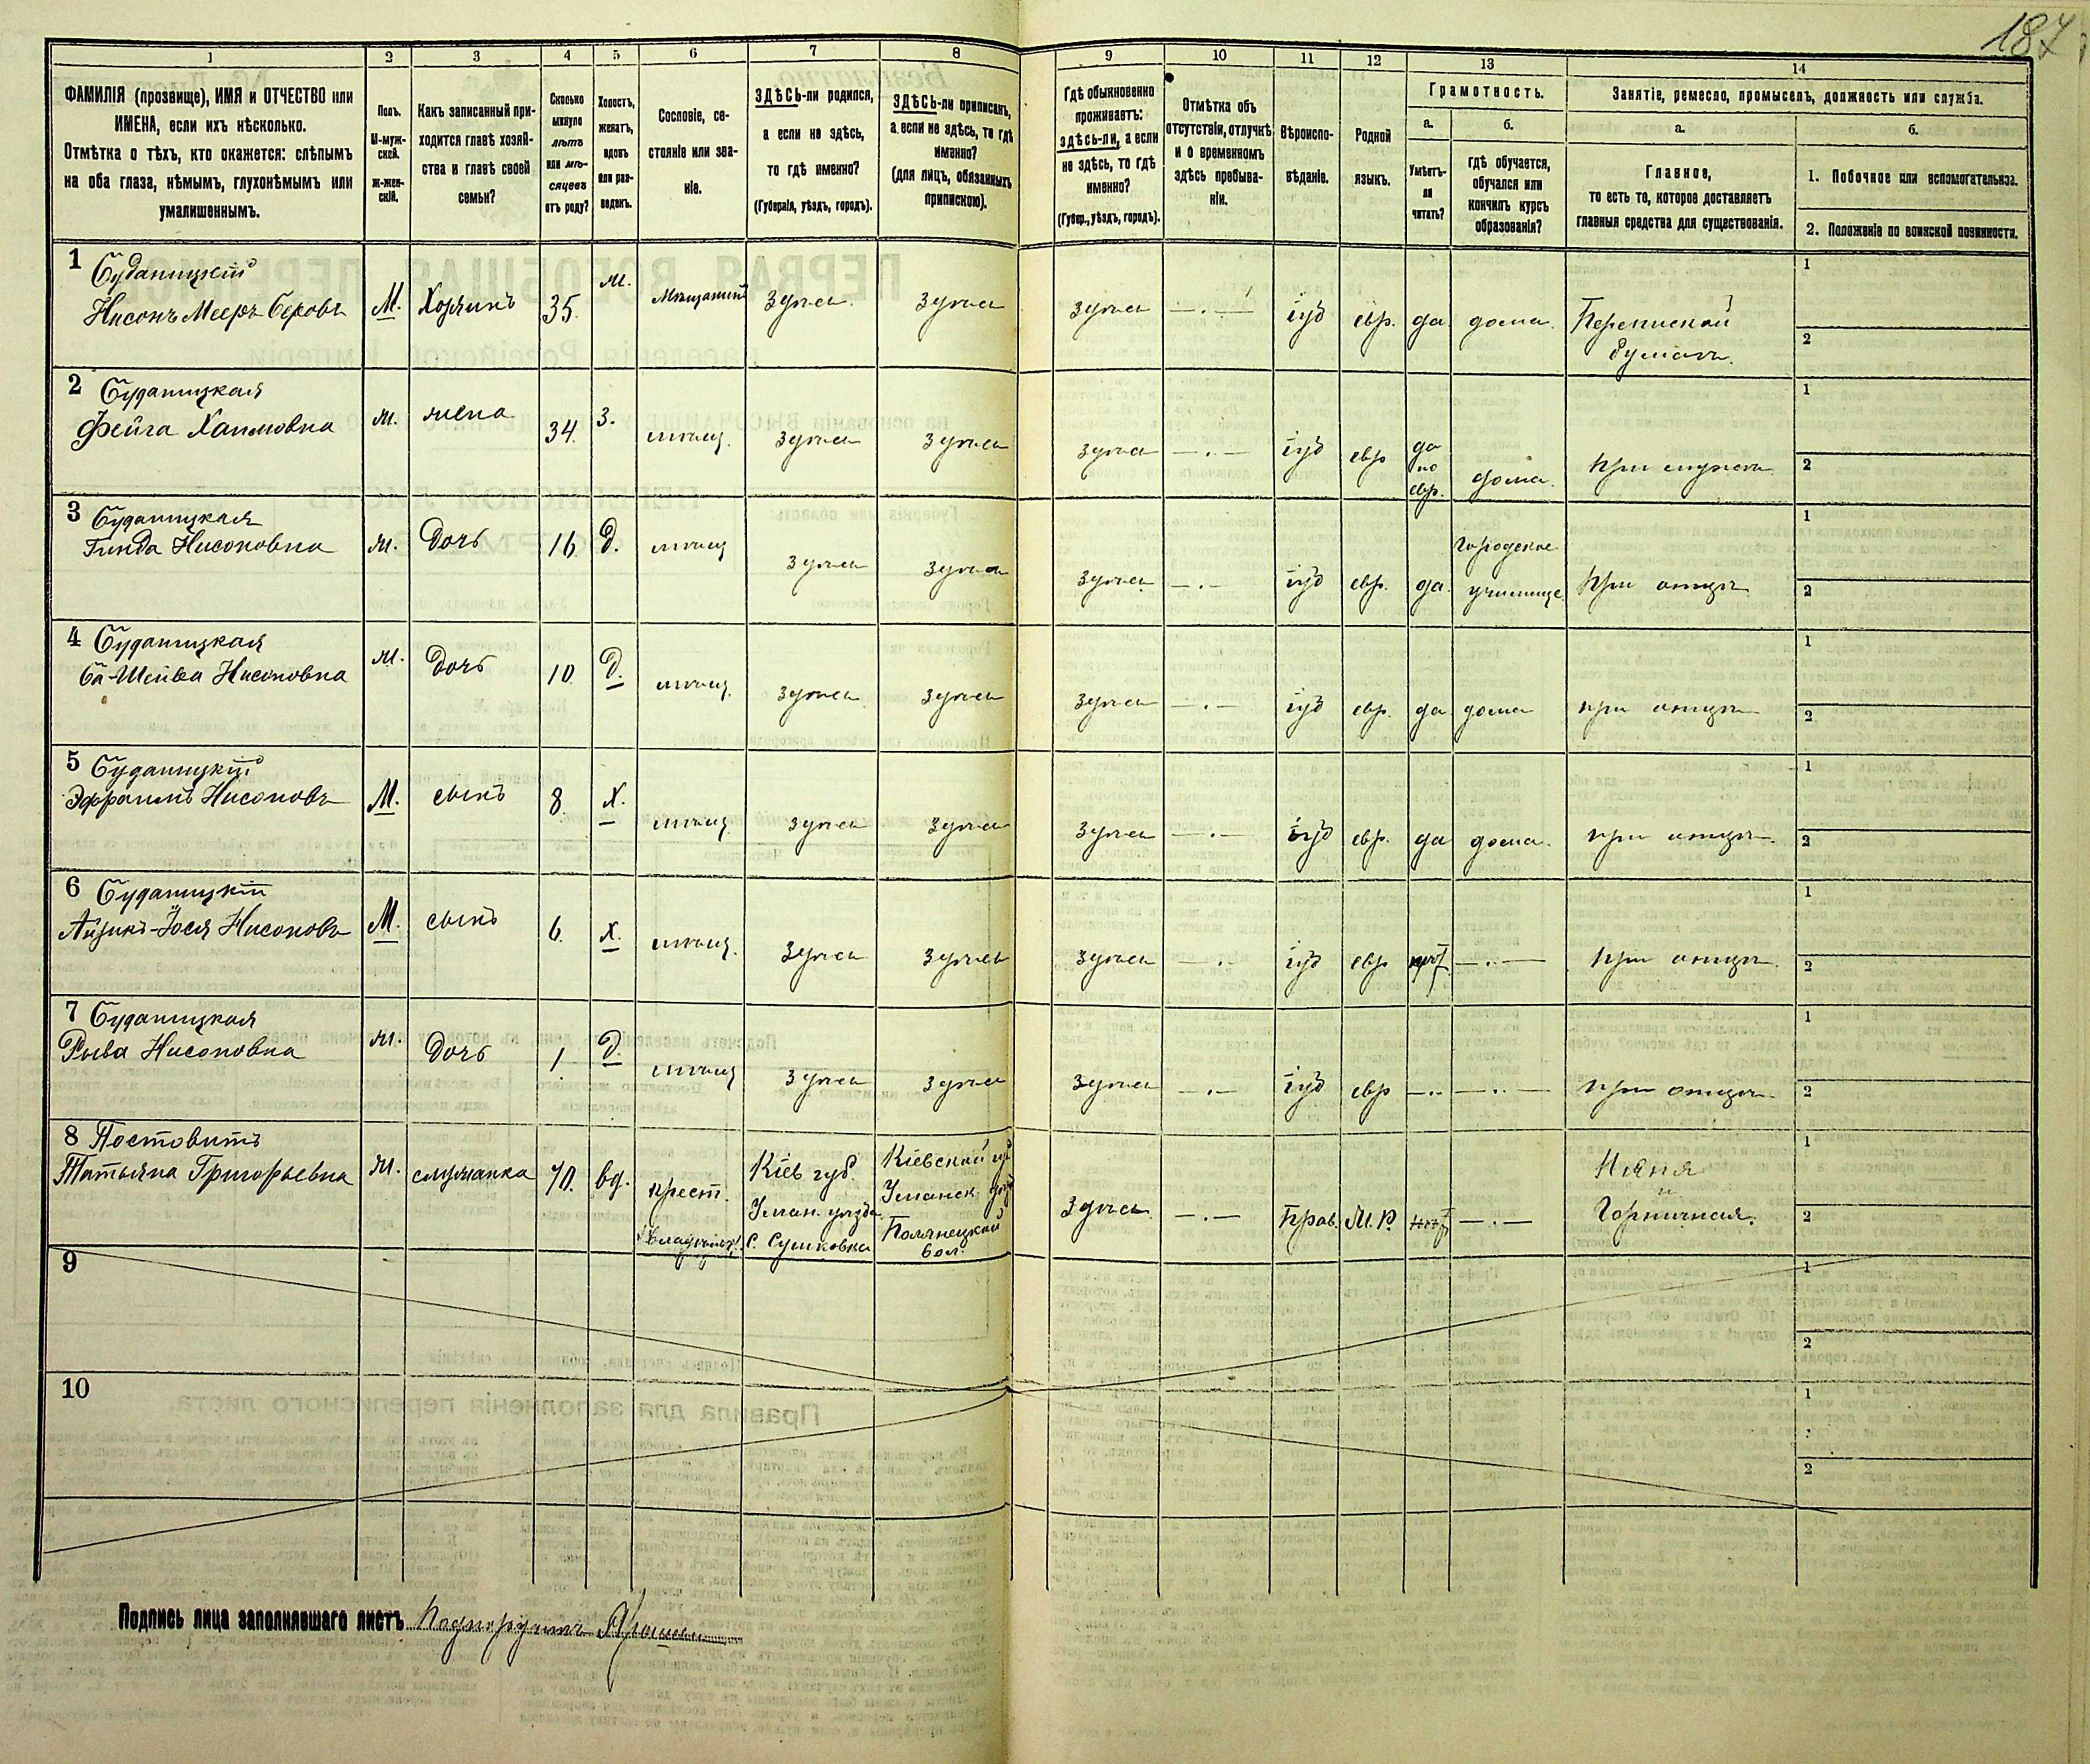 187
1 2 3 4 5 6 7 8 9 10 11 12 13 14
ФАМИЛІЯ (прозвище), ИМЯ и ОТЧЕСТВО или
ИМЕНА, если ихъ нѣсколько.
Отмѣтка о тѣхъ, кто окажется: слѣпымъ
на оба глаза, нѣмымъ, глухонѣмымъ или
умалишеннымъ.
Полъ.
М-муж-
ской.
Ж-жен-
скій.
Какъ записанный при-
ходится главѣ хозяй-
ства и главѣ своей
семьи?
Сколько
минуло
лѣтъ
или мѣ-
сяцевъ
отъ роду?
Холостъ,
женатъ,
вдовъ
или раз-
веденъ.
Сословіе, со-
стояніе или зва-
ніе.
ЗДѢСЬ-ли родился,
а если не здѣсь,
то гдѣ именно?
(Губернія, уѣздъ, городъ).
ЗДѢСЬ-ли приписанъ,
а если не здѣсь, то гдѣ
именно?
(для лицъ, обязанныхъ
припискою).
Гдѣ обыкновенно
проживаетъ:
здѣсь-ли, а если
не здѣсь, то гдѣ
именно?
(Губер., уѣздъ, городъ).
Отмѣтка объ
отсутствіи, отлучкѣ
и о временномъ
здѣсь пребыва-
ніи.
Вѣроиспо-
вѣданіе.
Родной
языкъ.
Грамотность.
а.
Умѣетъ-
ли
читать?
б.
гдѣ обучается,
обучался или
кончилъ курсъ
образованія?
Занятіе, ремесло, промыселъ, должность или служба.
а.
Главное,
то есть то, которое доставляетъ
главныя средства для существованія.
б.
1. Побочное или вспомогательное.
2. Положеніе по воинской повинности.
1 Будатицкій
Нисонъ Мееръ Беровъ М. Хозяинъ 35 ж. Мѣщанинъ здѣсь здѣсь здѣсь іуд евр. да дома.
1
2
2 Будатицкая
Фейга Хаимовна ж. жена 34 з. мѣщ. здѣсь здѣсь здѣсь іуд евр да
по
евр. дома. при мужѣ
1
2
3 Будатицкая
Гинда Нисоновна ж. Дочь 16 д. мѣщ здѣсь здѣсь здѣсь іуд евр. да Городское
училище при отцѣ
1
2
4 Будатицкая
Ба-Шейва Нисоновна ж. Дочь 10 д. мѣщ. здѣсь здѣсь здѣсь іуд евр. да дома при отцѣ
1
2
5 Будатицкій
Эфраимъ Нисоновъ М. сынъ 8 х. мѣщ здѣсь здѣсь здѣсь іуд евр. да дома. при отцѣ
1
2
6 Будатицкій
Айзикъ-Іося Нисоновъ М. сынъ 6 х. мѣщ. здѣсь здѣсь здѣсь іуд евр нѣтъ при отцѣ
1
2
7 Будатицкая
Рыва Нисоновна ж. Дочь 1 д. мѣщ здѣсь здѣсь здѣсь іуд евр при отцѣ
1
2
8 Постовитъ
Татьяна Григорьевна ж. служанка 70. вд. крест. Кіев губ.
Уман. уѣзда
с. Сушковка
Кіевской губ
Уманск. уѣзд
Полянецкой
вол.
Здѣсь Прав. М. Р. нѣтъ Няня
и
Горничная.
1
2
9
1
2
10
1
2
Подпись лица заполнявшаго листъ Подпоручикъ